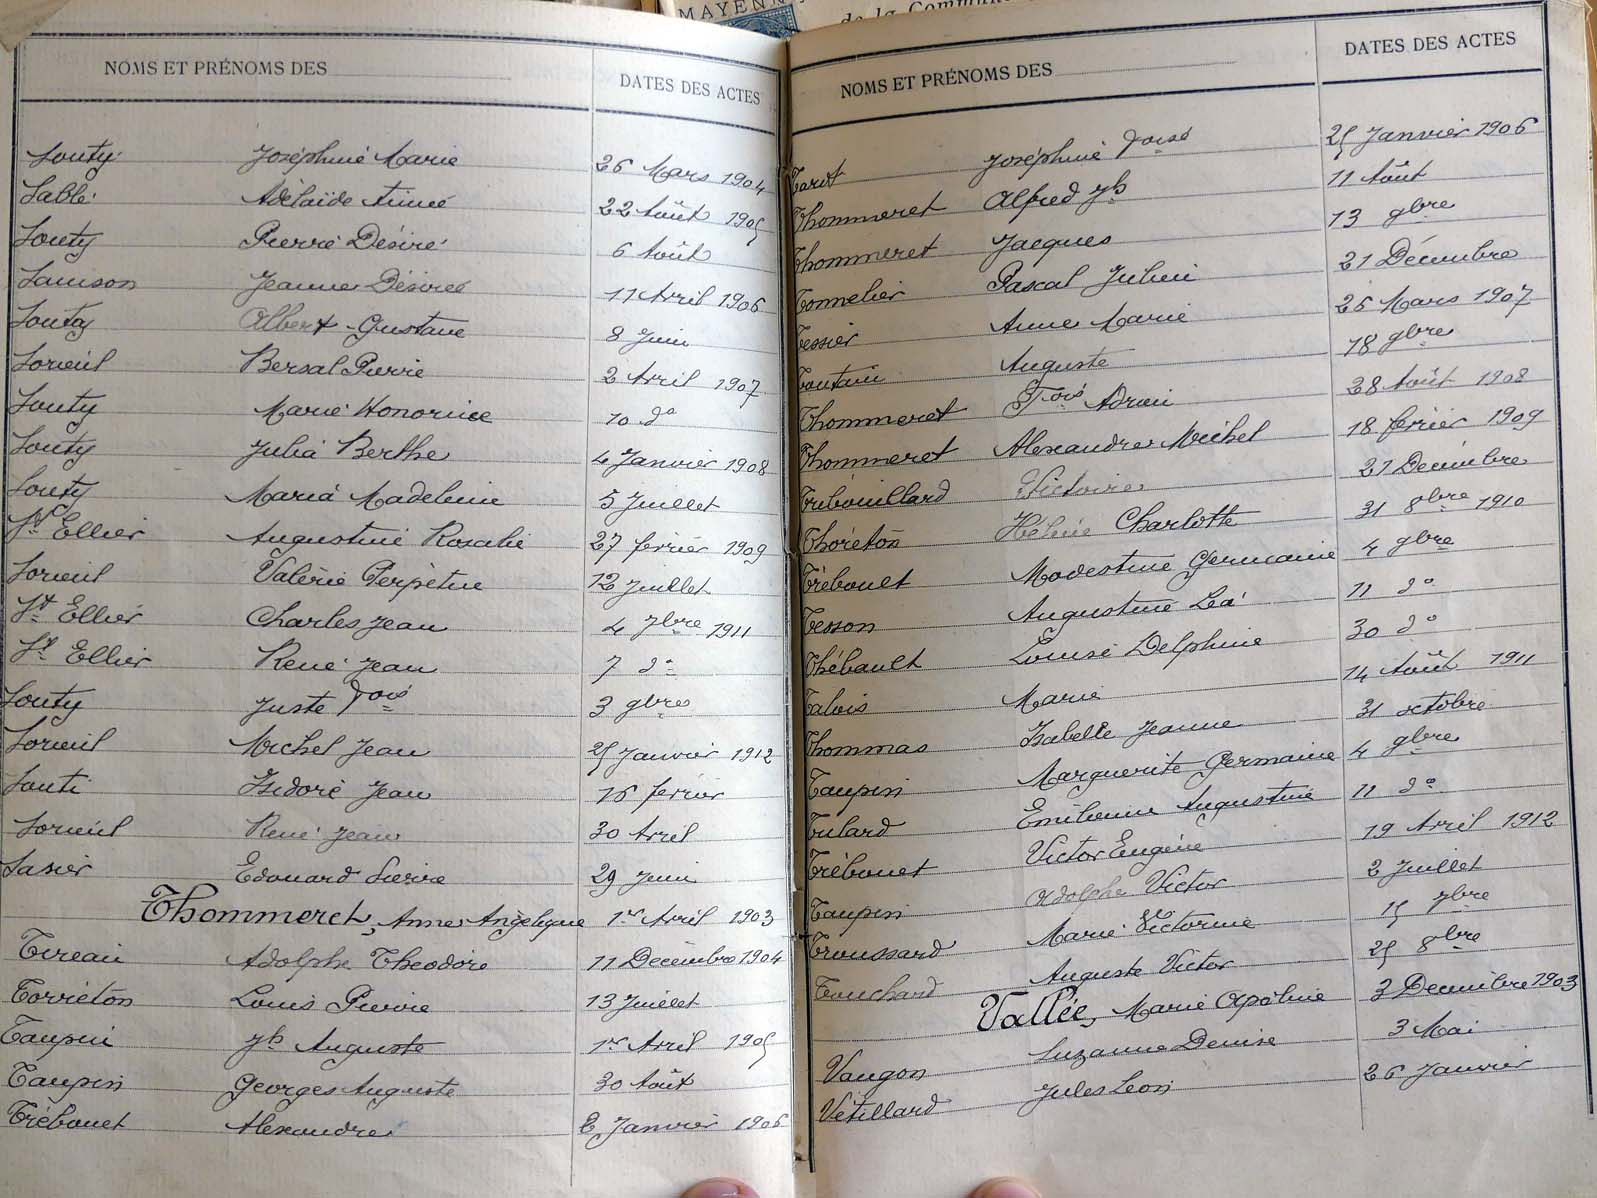 MAYENNE
de la Commune
NOMS ET PRÉNOMS DES DATES DES ACTES
Souty Joséphine Marie 26 Mars 1904
Sablé Adélaïde Aimée 22 Août 1905
Souty Pierre Désiré 6 Août
Samson Jeanne Désirée 11 Avril 1906
Souty Albert Gustave 8 Juin
Sorieul Bersal Pierre 2 Avril 1907
Souty Marie Honorine 10 do
Souty Julia Berthe 4 Janvier 1908
Souty Maria Madeleine 5 Juillet
St Ellier Augustine Rosalie 27 février 1909
Sorieul Valérie Perpétue 12 Juillet
St Ellier Charles Jean 4 7bre 1911
St Ellier René Jean 7 do
Souty Juste Fois 3 9bre
Sorieul Michel Jean 25 Janvier 1912
Souti Isidore Jean 16 février
Sorieul René Jean 30 Avril
Sasier Edouard Pierre 29 Juin
Thommeret, Anne Angélique 1er Avril 1903
Tireau Adolphe Théodore 11 Décembre 1904
Torréton Louis Pierre 13 Juillet
Taupin Jh Auguste 1er Avril 1905
Taupin Georges Auguste 30 Août
Trébouet Alexandre 2 Janvier 1906
NOMS ET PRÉNOMS DES DATES DES ACTES
Tarot Joséphine Foise 25 Janvier 1906
Thommeret Alfred Jh 11 Août
Thommeret Jacques 13 9bre
Tonnelier Pascal Julien 21 Décembre
Tessier Anne Marie 26 Mars 1907
Toutain Auguste 18 9bre
Thommeret Fois Adrien 28 Août 1908
Thommeret Alexandre Michel 18 février 1909
Trébouillard Victoire 27 Décembre
Thoréton Hélène Charlotte 31 8bre 1910
Trébouet Modestine Germaine 4 9bre
Tesson Augustine Léa 11 do
Thébault Louise Delphine 30 do
Talois Marie 14 Août 1911
Thommas Isabelle Jeanne 31 octobre
Taupin Marguerite Germaine 4 9bre
Tulard Emilienne Augustine 11 do
Trébouet Victor Eugène 19 Avril 1912
Taupin Adolphe Victor 2 Juillet
Troussard Marie Victorine 15 7bre
Touchard Auguste Victor 25 8bre
Vallée, Marie Apoline 3 Décembre 1903
Vaugon Suzanne Denise 3 Mai
Vétillard Jules Léon 26 Janvier